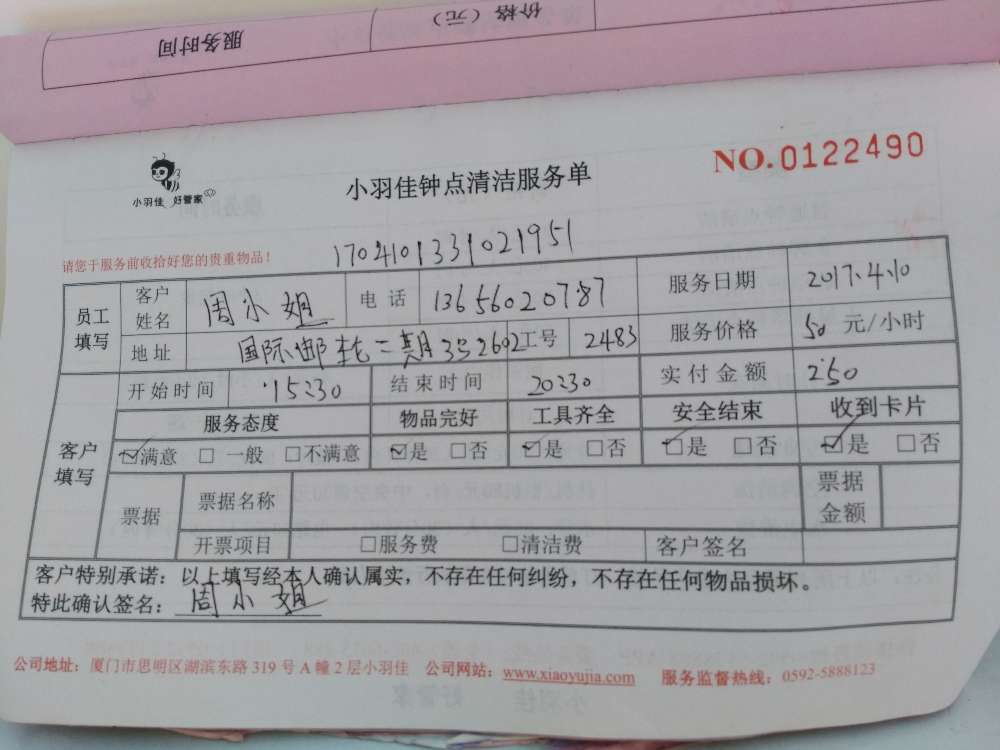 服务时间 价格（元）
小羽佳 好管家
小羽佳钟点清洁服务单
NO.0122490
1704101331021951
请您于服务前收拾好您的贵重物品！
员工填写 客户姓名 周小姐 电话 13656020787 服务日期 2017.4.10
地址 国际邮轮二期352602 工号 2483 服务价格 50 元/小时
客户填写 开始时间 15:30 结束时间 20:30 实付金额 250
服务态度 物品完好 工具齐全 安全结束 收到卡片
☑满意 □一般 □不满意 ☑是 □否 ☑是 □否 ☑是 □否 ☑是 □否
票据 票据名称 票据金额
开票项目 □服务费 □清洁费 客户签名
客户特别承诺：以上填写经本人确认属实，不存在任何纠纷，不存在任何物品损坏。
特此确认签名：周小姐
公司地址：厦门市思明区湖滨东路319号A幢2层小羽佳 公司网站：www.xiaoyujia.com 服务监督热线：0592-5888123